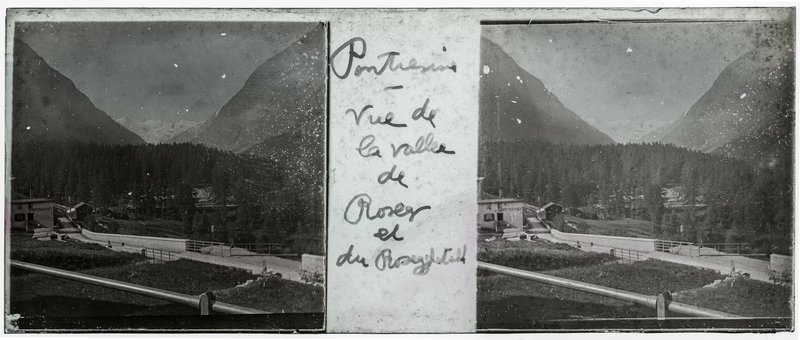 Pontresina
-
Vue de
la vallée
de
Roseg
et
du Roseggthal